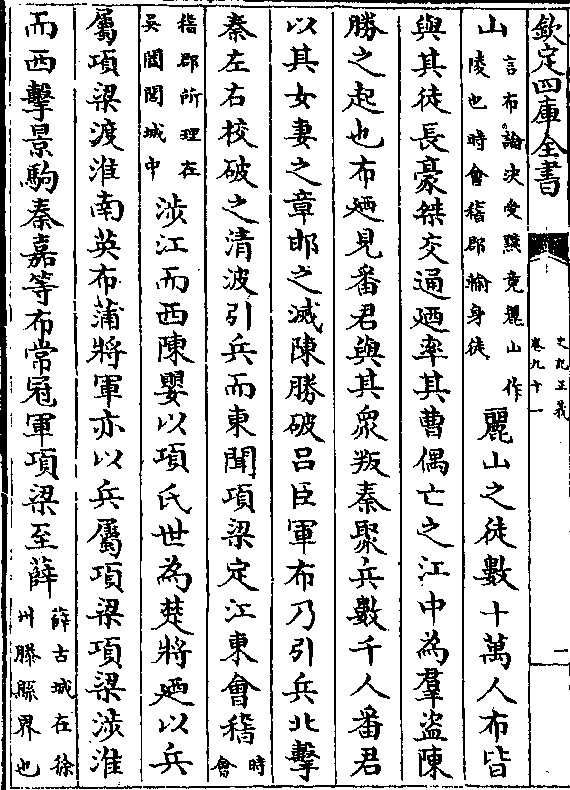 欽定四庫全書
史記正義
卷九十一
一
山言布論決受黥竟麗山作陵也時會稽郡輸身徒麗山之徒數十萬人布皆
與其徒長豪桀交通廼率其曹偶亡之江中為羣盜陳
勝之起也布廼見番君與其衆叛秦聚兵數千人番君
以其女妻之章邯之滅陳勝破呂臣軍布乃引兵北擊
秦左右校破之清波引兵而東聞項梁定江東會稽時會
稽郡所理在吳闔閭城中涉江而西陳嬰以項氏世為楚將廼以兵
屬項梁渡淮南英布蒲將軍亦以兵屬項梁項梁涉淮
而西擊景駒秦嘉等布常冠軍項梁至薛薛古城在徐州滕縣界也